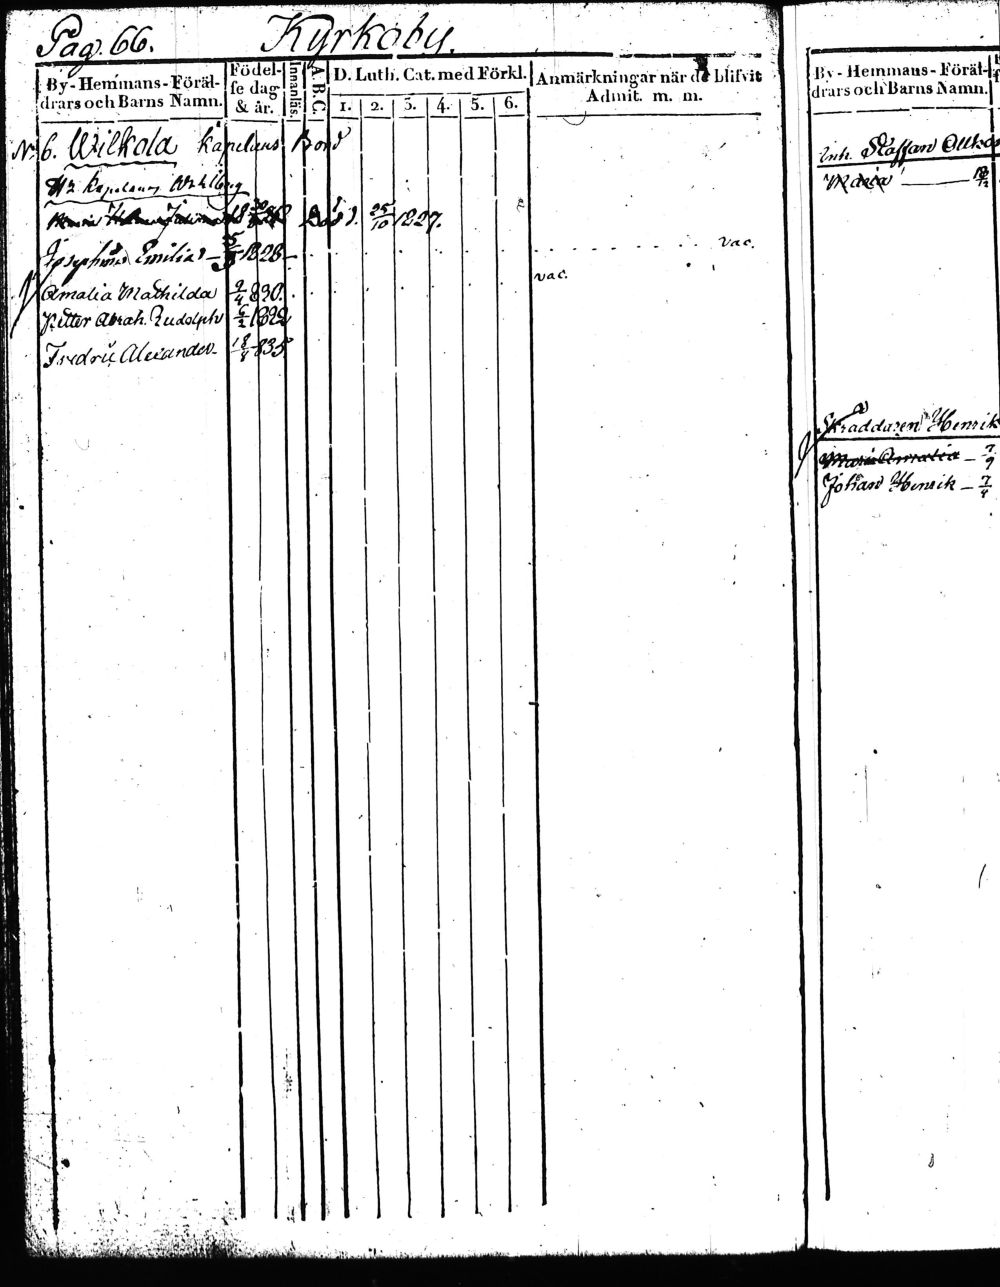 Pag. 66. Kyrkoby.
By-Hemmans-Föräl-
drars och Barns Namn.
Födel-
se dag
& år.
Innanläs.
A.B.C.
D. Luth. Cat. med Förkl.
1. 2. 3. 4. 5. 6.
Anmärkningar när de blifvit
Admit. m. m.
No. 6. Wilkola Kapelans Bord
Hr Kapelanen
Död d. 25/10 1827.
Josephina Emilia 1828 vac.
Amalia Mathilda 9/4 830. vac.
Petter Abrah. Rudolph 6/2 1832
Fredric Alexander 835
By-Hemmans-Föräl-
drars och Barns Namn.
Inh. Staffan
Maria
Skräddaren Henrik
Maria Amalia 7/9
Johan Henrik